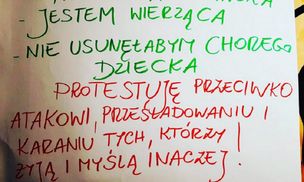 - JESTEM WIERZĄCA
- NIE USUNĘŁABYM CHOREGO
DZIECKA
PROTESTUJĘ PRZECIWKO
ATAKOWI, PRZEŚLADOWANIU I
KARANIU TYCH, KTÓRZY
ŻYJĄ I MYŚLĄ INACZEJ!